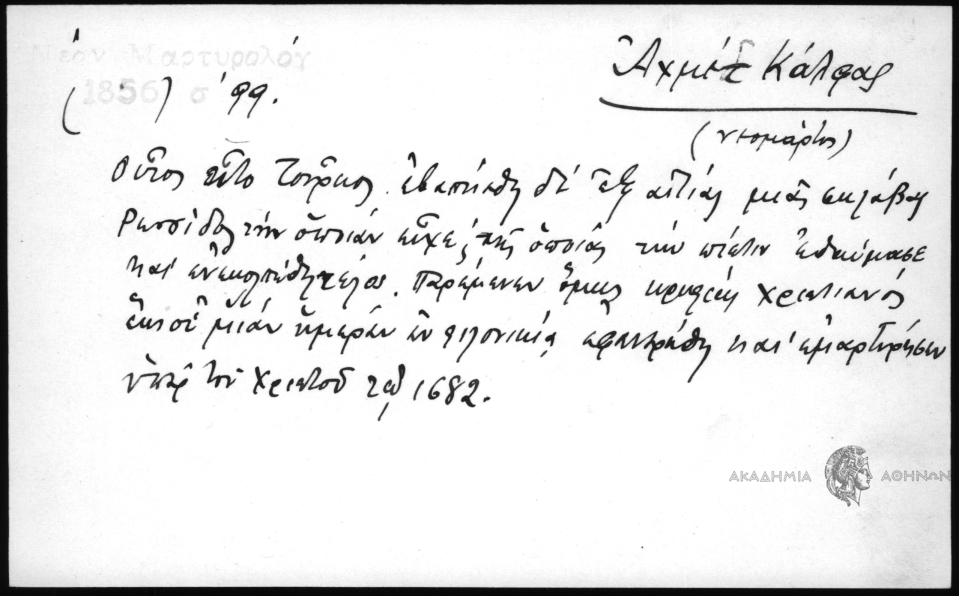 Νέον Μαρτυρολόγ
1856 σ 99.
Ἀχμέτ Κάλφας
(νεομάρτυς)
Οὗτος ἦτο Τοῦρκος. ἐβαπτίσθη δὲ ἐξ αἰτίας μιᾶς σκλάβας
Ρωσσίδος τὴν ὁποίαν εἶχε, τῆς ὁποίας τὴν πίστιν ἐθαύμασε
καὶ ἐνεκολπώθη τέλος. Παρέμενεν ὅμως κρυφίως χριστιανός
ἕως οὗ μίαν ἡμέραν ἐν φιλονικίᾳ ἐφανερώθη καὶ ἐμαρτύρησεν
ὑπὲρ τοῦ Χριστοῦ τῷ 1682.
ΑΚΑΔΗΜΙΑ ΑΘΗΝΩΝ